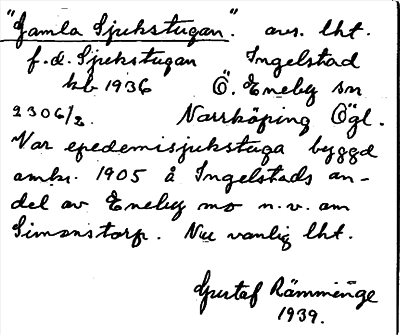 "Gamla Sjukstugan." avs. lht.
f.d. Sjukstugan Ingelstad
kb 1936 Ö. Eneby sn
2306/2. Norrköping Ögl.
Var epedemisjukstuga byggd
omkr. 1905 å Ingelstads an-
del av Eneby mo n.v. om
Simonstorp. Nu vanlig lht.
Gustaf Rämminge
1939.